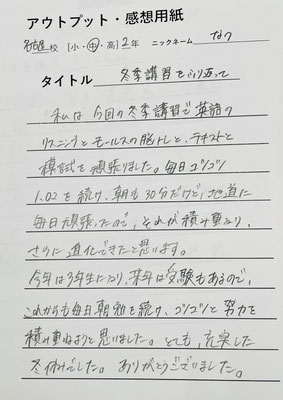 アウトプット・感想用紙
名古屋校 [小・中・高] 2年 ニックネーム なつ
タイトル 冬季講習をふり返って
私は今回の冬季講習で英語の
リスニングとモールスの脳トレと、テキストと
模試を頑張りました。毎日コツコツ
1.02を続け、朝も30分だけど、地道に
毎日頑張ったので、それが積み重なり、
さらに進化できたと思います。
今年は3年生になり、来年は受験もあるので、
これからも毎日朝勉を続け、コツコツと努力を
積み重ねようと思いました。とても、充実した
冬休みでした。ありがとうございました。